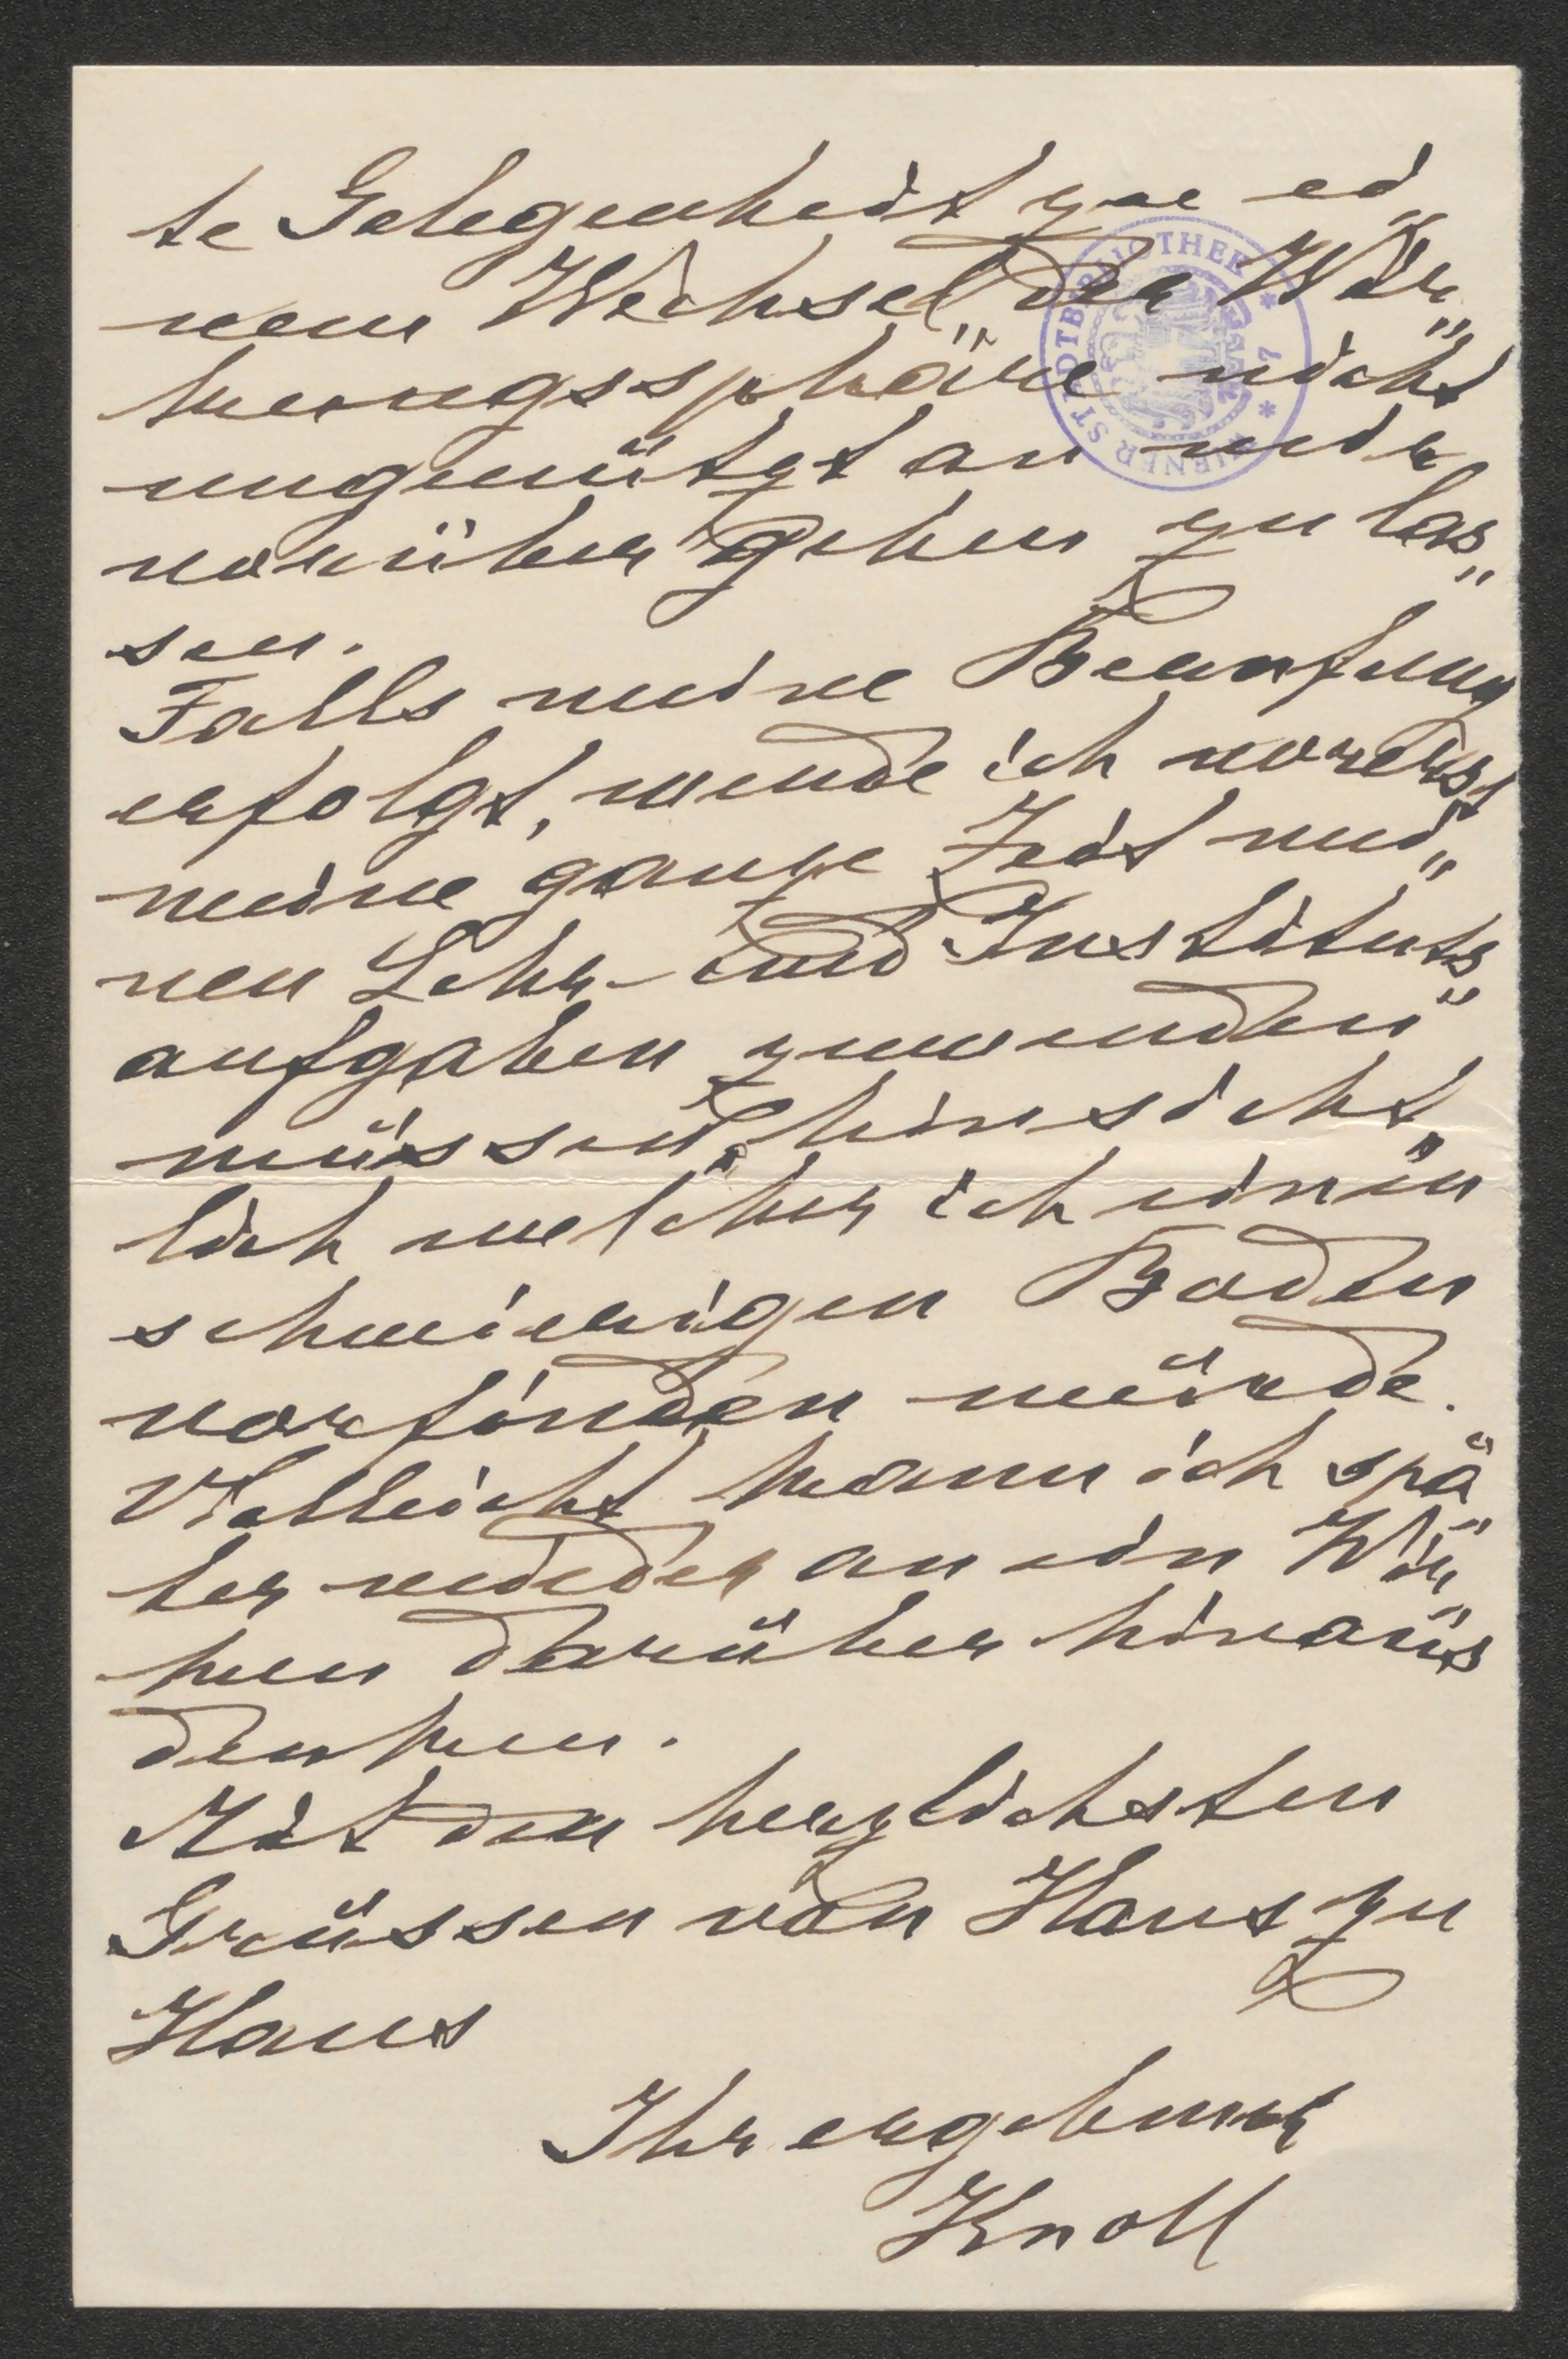 te Gelegenheit zu ei„
nem Wechsel der Wir„
kungssphäre nicht
ungenützt an mir
vorüber gehen zu las„
sen.
Falls meine Berufung
erfolgt, werde ich vorerst
meine ganze Zeit mei„
nen Lehr- und Instituts„
aufgaben zuwenden
müssen, hinsicht„
lich welcher ich einen
schwierigen Boden
vorfinden würde.
Vielleicht kann ich spä„
ter wieder an ein Wir„
ken darüber hinaus
denken.
Mit den herzlichsten
Grüssen von Haus zu
Haus
Ihr ergebener
Knoll
WIENER STADTBIBLIOTHEK * 7 *